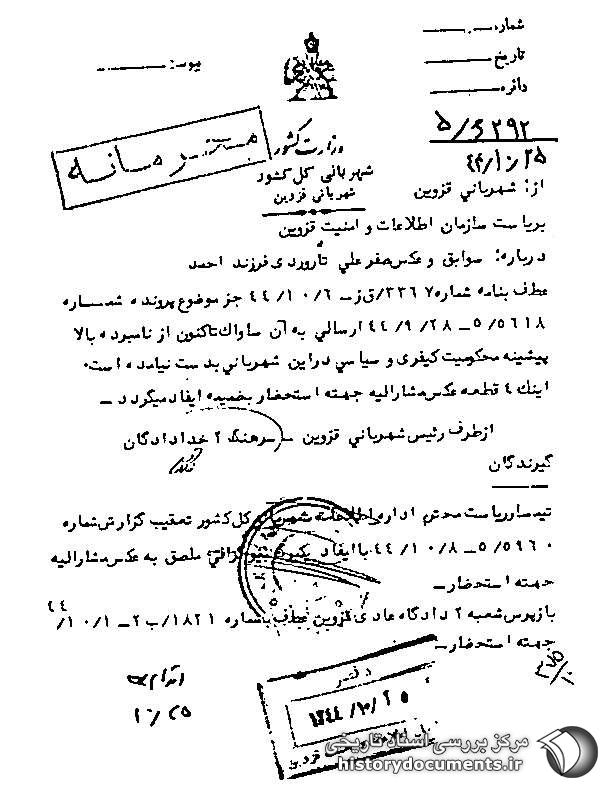 شماره
تاریخ
دائره
پیوست:
۵/۶۲۹۲
۴۴/۱۰/۲۵
محرمانه
وزارت کشور
شهربانی کل کشور
شهربانی قزوین
از: شهرباني قزوین
بریاست سازمان اطلاعات و امنیت قزوین
درباره: سوابق و عکس صفرعلي تاروردی فرزند احمد
عطف بنامه شماره ۳۳۶۷/ق ز ـ ۴۴/۱۰/۶ جز موضوع پرونده شماره
۵/۵۶۱۸ ـ ۴۴/۹/۲۸ ارسالي به آن ساواك تاکنون از نامبرده بالا
پیشینه محکومیت کیفری و سیاسي دراین شهرباني بدست نیامده است.
اینك ٤ قطعه عکس مشارالیه جهته استحضار بضمیمه ایفاد میگردد ـ
ازطرف رئیس شهرباني قزوین ـ سرهنگ ۲ خدادادگان
گیرندگان
تیمسار ریاست محترم اداره اطلاعات شهرباني کل کشور تعقیب گزارش شماره
۵/۵۹۶۰ ـ ۴۴/۱۰/۸ با ایفاد ملصق به عکس مشارالیه
جهته استحضار ـ
بازپرس شعبه ۲ دادگاه عادی قزوین عطف بشماره ۱۸۲۱/ب ۲ ـ ۴۴/۱۰/۱
جهته استحضار ـ
اقدام
۱۰/۲۵
دفتر
۱۳۴۴/۱۰/۲۵
قزوین
مرکز بررسی اسناد تاریخی
historydocuments.ir